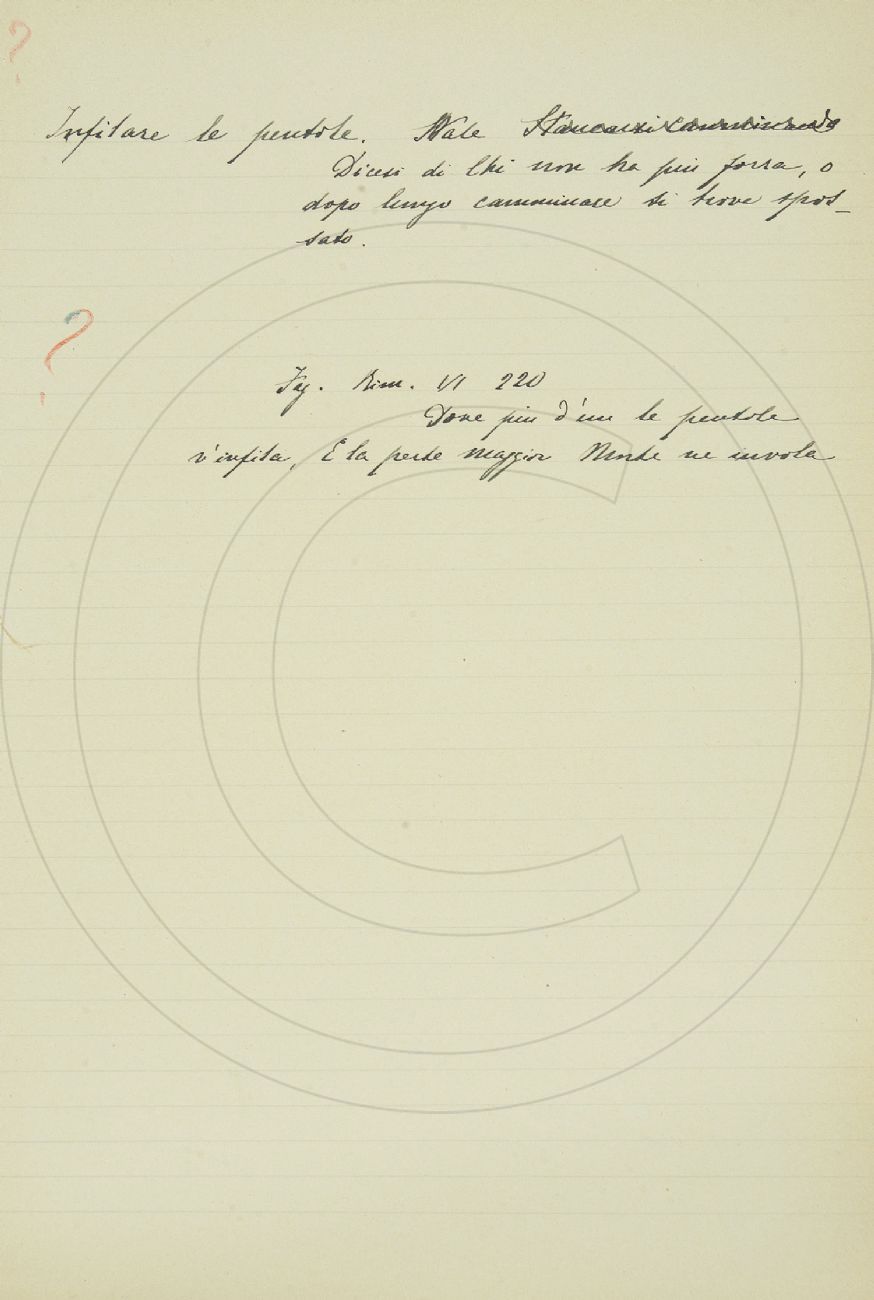 ?
Infilare le pentole. Vale Stancarsi camminando
Dicesi di Chi non ha più forza, o
dopo lungo camminare si trova spos-
sato.
?
Fag. Rim. VI 220
Dove più d'un le pentole
v'infila, E la parte maggior Morte ne invola